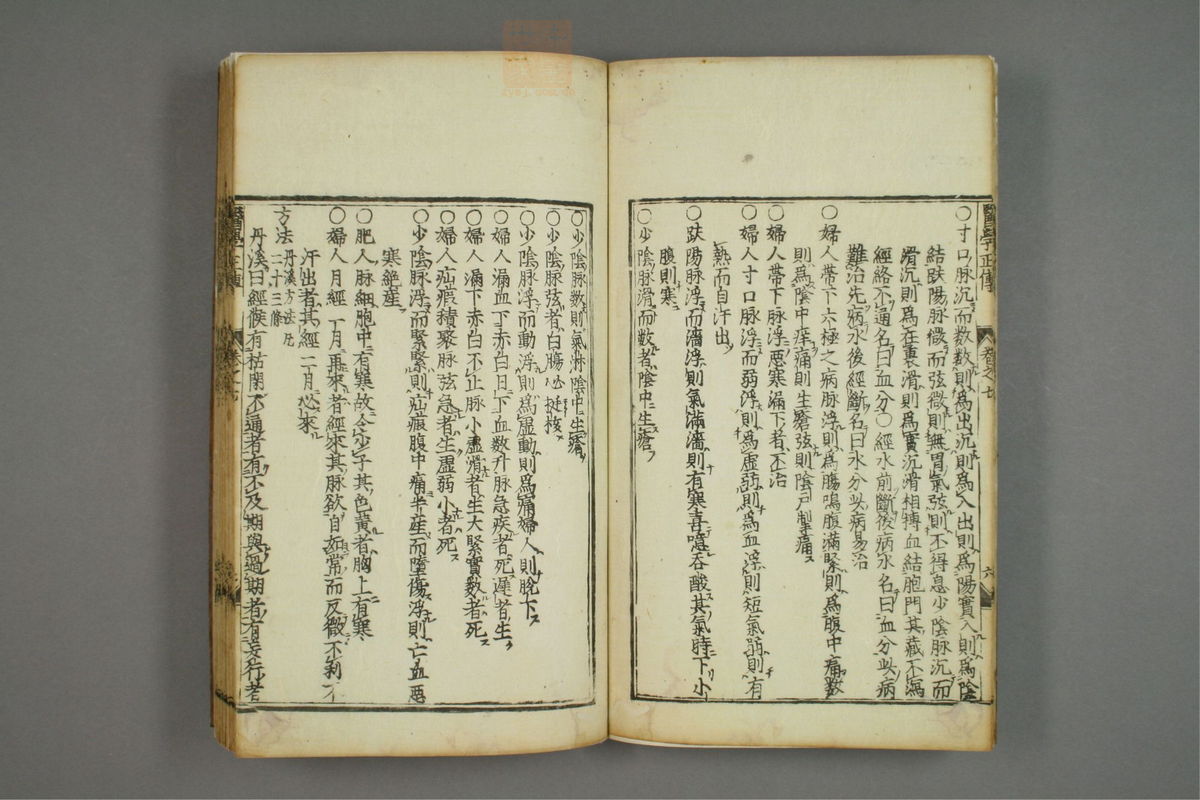 ○寸口脉沉而数数則爲出沉則爲入出則爲陽實入則爲陰
結趺陽脉微而弦微則無胃氣弦則不得息少陰脉沉而
滑沉則爲在裏滑則爲實沉滑相搏血結胞門其藏不瀉
經絡不通名曰血分○經水前斷後病水名曰血分此病
難治先病水後經斷名曰水分此病易治
○婦人帶下六極之病脉浮則爲腸鳴腹滿緊則爲腹中痛数
則爲陰中痒痛則生瘡弦則陰戸掣痛
○婦人帶下脉浮惡寒漏下者不治
○婦人寸口脉浮而弱浮則爲虛弱則爲血浮則短氣弱則有
熱而自汗出
○趺陽脉浮而濇浮則氣滿濇則有寒喜噫吞酸其氣時下小
腹則寒
○少陰脉滑而數者陰中生瘡
醫學正傳 卷之七 六
○少陰脉数則氣淋陰中生瘡
○少陰脉弦者白腸必挺核
○少陰脉浮而動浮則爲虛動則爲痛婦人則脫下
○婦人漏血下赤白日下血数升脉急疾者死遲者生
○婦人漏下赤白不止脉小虛滑者生大緊實数者死
○婦人疝瘕積聚脉弦急者生虛弱小者死
○少陰脉浮而緊緊則疝瘕腹中痛半産而墮傷浮則亡血惡
寒絶産
○肥人脉細胞中有寒故令少子其色黄者胸上有寒
○婦人月經一月再來者經來其脉欲自如常而反微不利不
汗出者其經二月必來
方法 丹溪方法凡二十三條
丹溪曰經候有枯閉不通者有不及期與過期者有妄行者
醫學正傳 卷之七